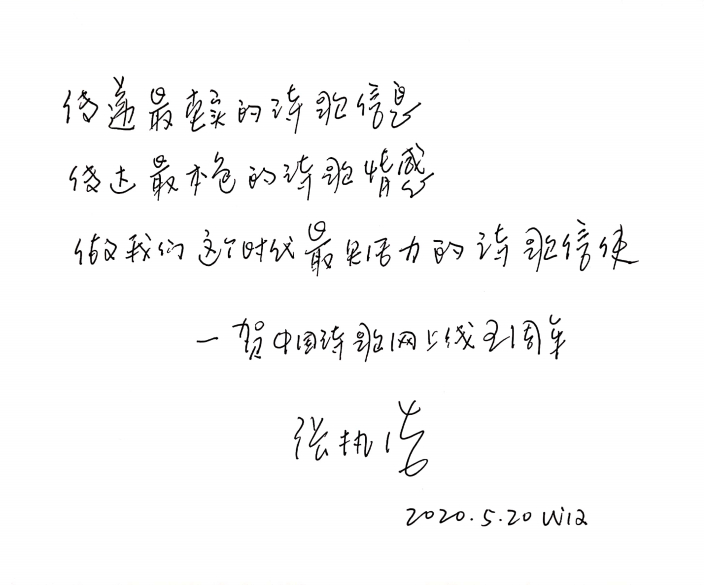 传递最真实的诗歌信息
传达最本色的诗歌情感
做我们这个时代最具活力的诗歌信使
—贺中国诗歌网上线五周年
张执浩
2020.5.20